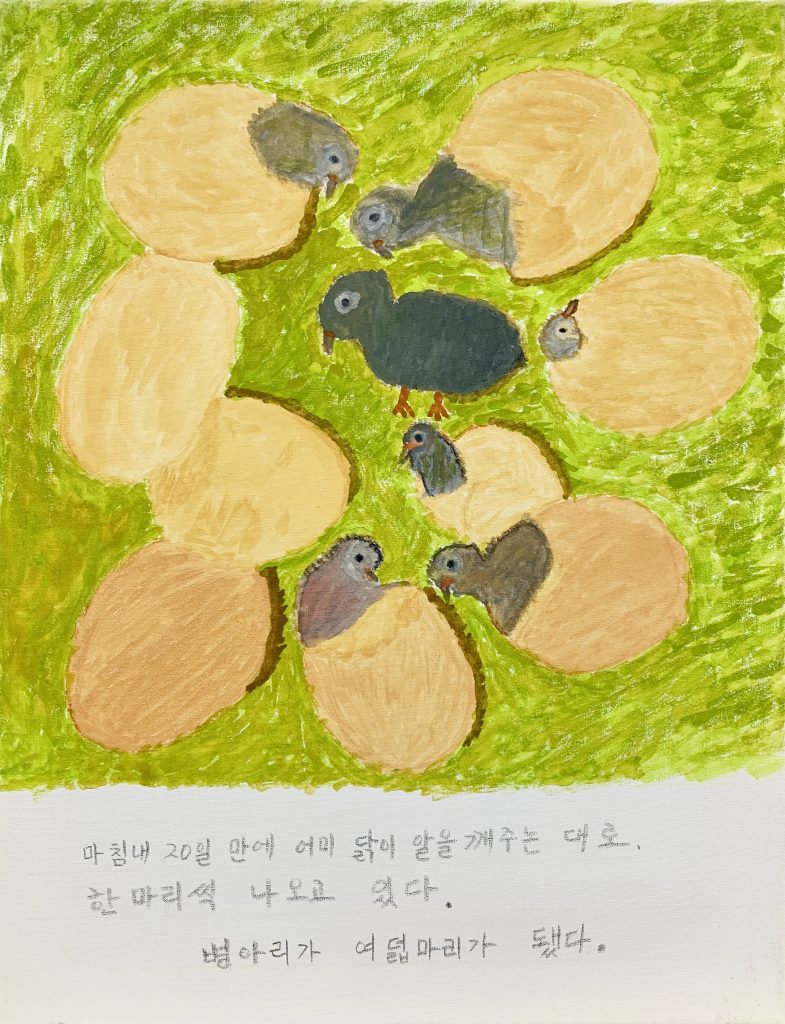 마침내 20일 만에 어미 닭이 알을 깨주는 대로.
한마리씩 나오고 있다.
병아리가 여덟마리가 됐다.